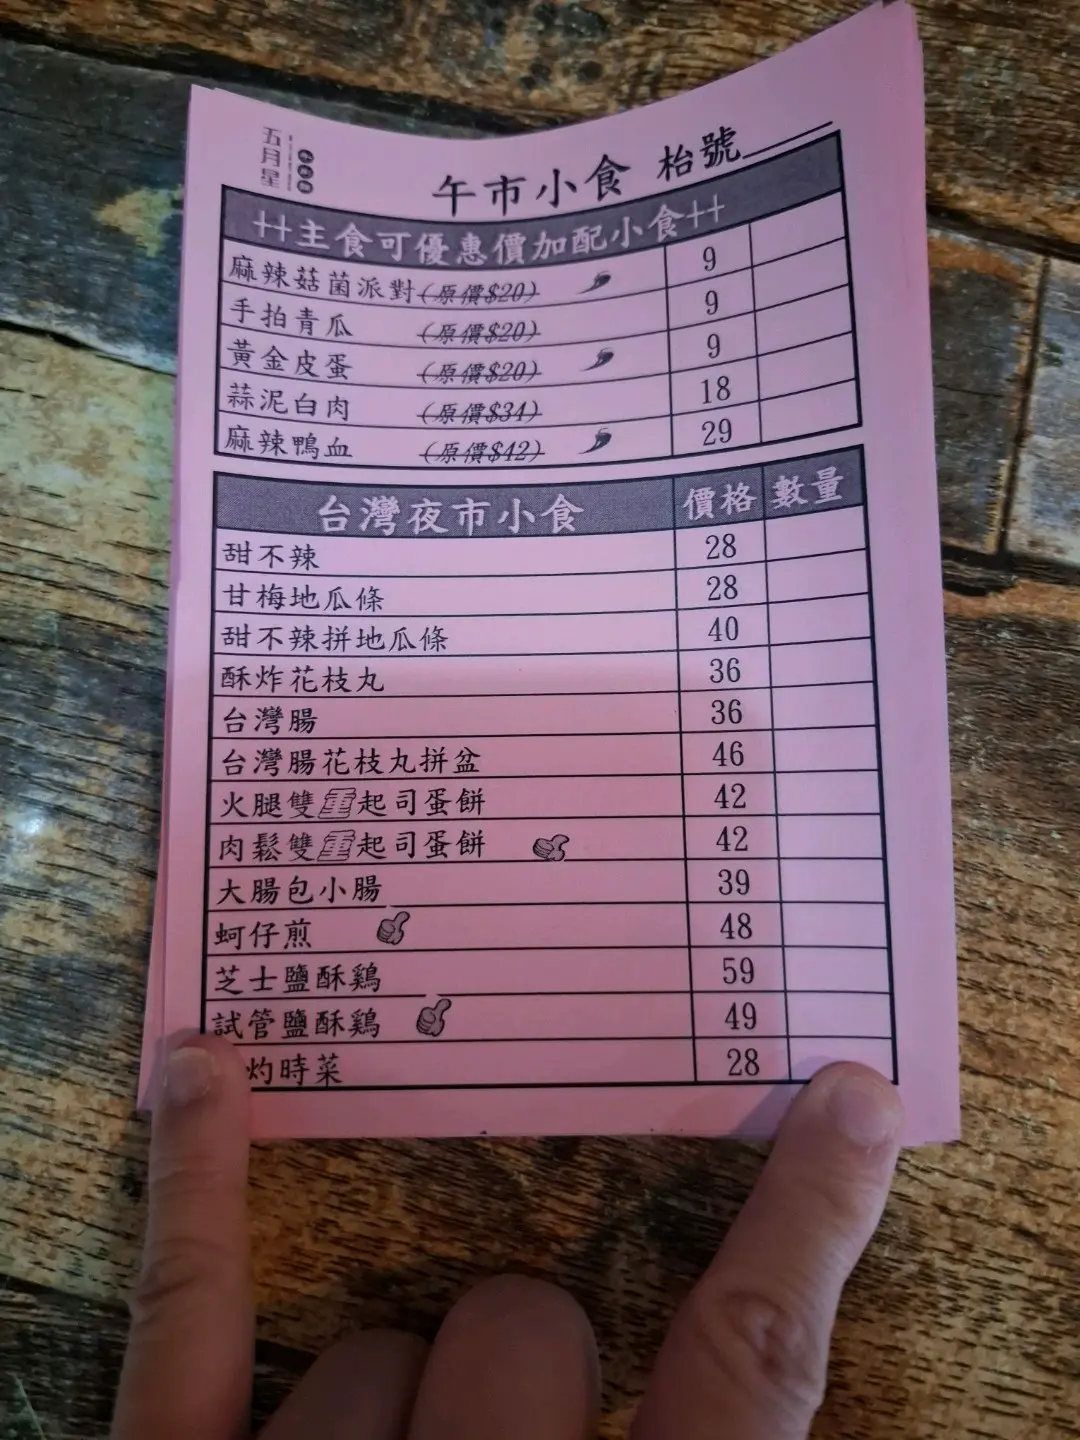 五月星
午市小食 枱號
++主食可優惠價加配小食++
麻辣菇菌派對(原價$20) 9
手拍青瓜 (原價$20) 9
黃金皮蛋 (原價$20) 9
蒜泥白肉 (原價$34) 18
麻辣鴨血 (原價$42) 29
台灣夜市小食 價格 數量
甜不辣 28
甘梅地瓜條 28
甜不辣拼地瓜條 40
酥炸花枝丸 36
台灣腸 36
台灣腸花枝丸拼盆 46
火腿雙重起司蛋餅 42
肉鬆雙重起司蛋餅 42
大腸包小腸 39
蚵仔煎 48
芝士鹽酥鷄 59
試管鹽酥鷄 49
灼時菜 28